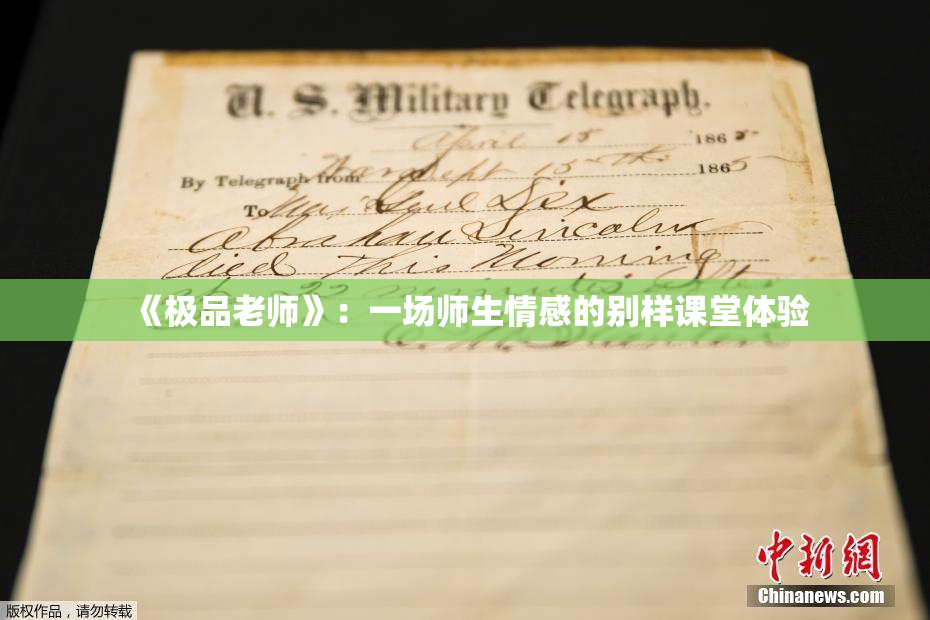 U. S. Military Telegraph.
April 15 1865
By Telegraph from War Dept 15th 1865
To Maj Genl Dix
Abraham Lincoln
died This Morning
at 22 minutes after
《极品老师》：一场师生情感的别样课堂体验
E. M. Stanton
中新网
Chinanews.com
版权作品，请勿转载